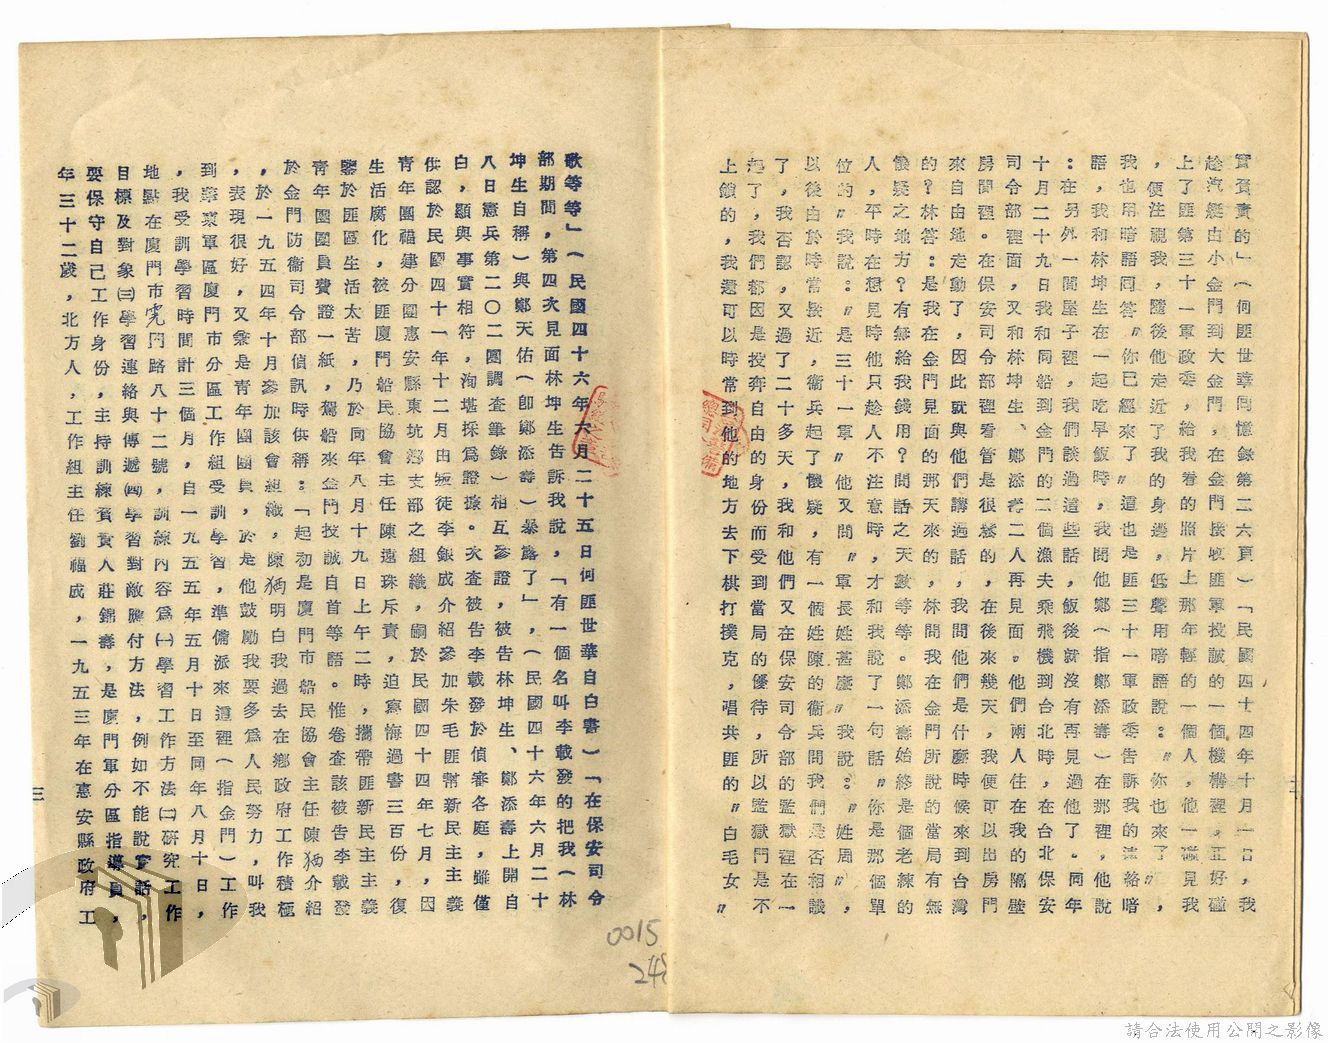 實賓實的」(何匪世華回憶錄第二六頁)「民國四十四年十月一日,我
趁汽艇由小金門到大金門,在金門接收匪軍投誠的一個機構裡,正好碰
上了匪第三十一軍政委,給我看的照片上那年輕的一個人,他一碰見我
,便注視我,隨後他走近了我的身邊,低聲用暗語說:〃你也來了〃,
我也用暗語同答〃你已經來了〃這也是匪三十一軍政委告訴我的連絡暗
語,我和林坤生在一起吃早飯時,我問他鄭(指鄭添壽)在那裡,他說
:在另外一間屋子裡,我們談過這些話,飯後就沒有再見過他了。同年
十月二十九日我和同船到金門的二個漁夫乘飛機到台北時,在台北保安
司令部裡面,又和林坤生、鄭添壽二人再見面。他們兩人住在我的隔壁
房間裡。在保安司令部裡看管是很鬆的,在後來幾天,我便可以出房門
來自由地走動了,因此就與他們講過話,我問他們是什麼時候來到台灣
的?林答:是我在金門見面的那天來的,林問我在金門所說的當局有無
懷疑之地方?有無給我錢用?問話之天數等等。鄭添壽始終是個老練的
人,平時在想見時他只趁人不注意時,才和我說了一句話〃你是那個單
位的〃我說:〃是三十一軍〃他又問〃軍長姓甚麼〃我說:〃姓周〃,
以後由於時常接近,衛兵起了懷疑,有一個姓陳的衛兵問我們是否相識
了,我否認,又過了二十多天,我和他們又在保安司令部的監獄裡在一
起了,我們都因是投奔自由的身份而受到當局的優待,所以監獄門是不
上鎖的,我還可以時常到他的地方去下棋打撲克,唱共匪的〃白毛女〃
三
歌等等」(民國四十六年六月二十五日何匪世華自白書)「在保安司令
部期間,第四次見面林坤生告訴我說,「有一個名叫李載發的把我(林
坤生自稱)與鄭天佑(即鄭添壽)暴露了」,(民國四十六年六月二十
八日憲兵第二〇二團調查筆錄)相互參證,被告林坤生、鄭添壽上開自
白,顯與事實相符,洵堪採為證據。次查被告李載發於偵審各庭,雖僅
供認於民國四十一年十二月由叛徒李銀成介紹參加朱毛匪幫新民主主義
青年團福建分團惠安縣東坑鄉支部之組織,嗣於民國四十四年七月,因
生活腐化,被匪廈門船民協會主任陳遠珠斥責,迫寫悔過書三百份,復
鑒於匪區生活太苦,乃於同年八月十九日上午二時,攜帶匪新民主主義
青年團團員費證一紙,駕船來金門投誠自首等語。惟卷查該被告李載發
於金門防衛司令部偵訊時供稱:「起初是廈門市船民協會主任陳炳介紹
,於一九五四年十月參加該會組織,陳炳明白我過去在鄉政府工作積極
,表現很好,又兼是青年團團員,於是他鼓勵我要多為人民努力,叫我
到華東軍區廈門市分區工作組受訓學習,準備派來這裡(指金門)工作
,我受訓學習時間計三個月,自一九五五年五月十日至同年八月十日,
地點在廈門市虎門路八十二號,訓練內容為㈠學習工作方法㈡研究工作
目標及對象㈢學習連絡與傳遞㈣學習對敵應付方法,例如不能說實話,
要保守自己工作身份,主持訓練負責人莊錦壽,是廈門軍分區指導員,
年三十二歲,北方人,工作組主任劉福成,一九五三年在惠安縣政府工
三
0015
248
請合法使用公開之影像